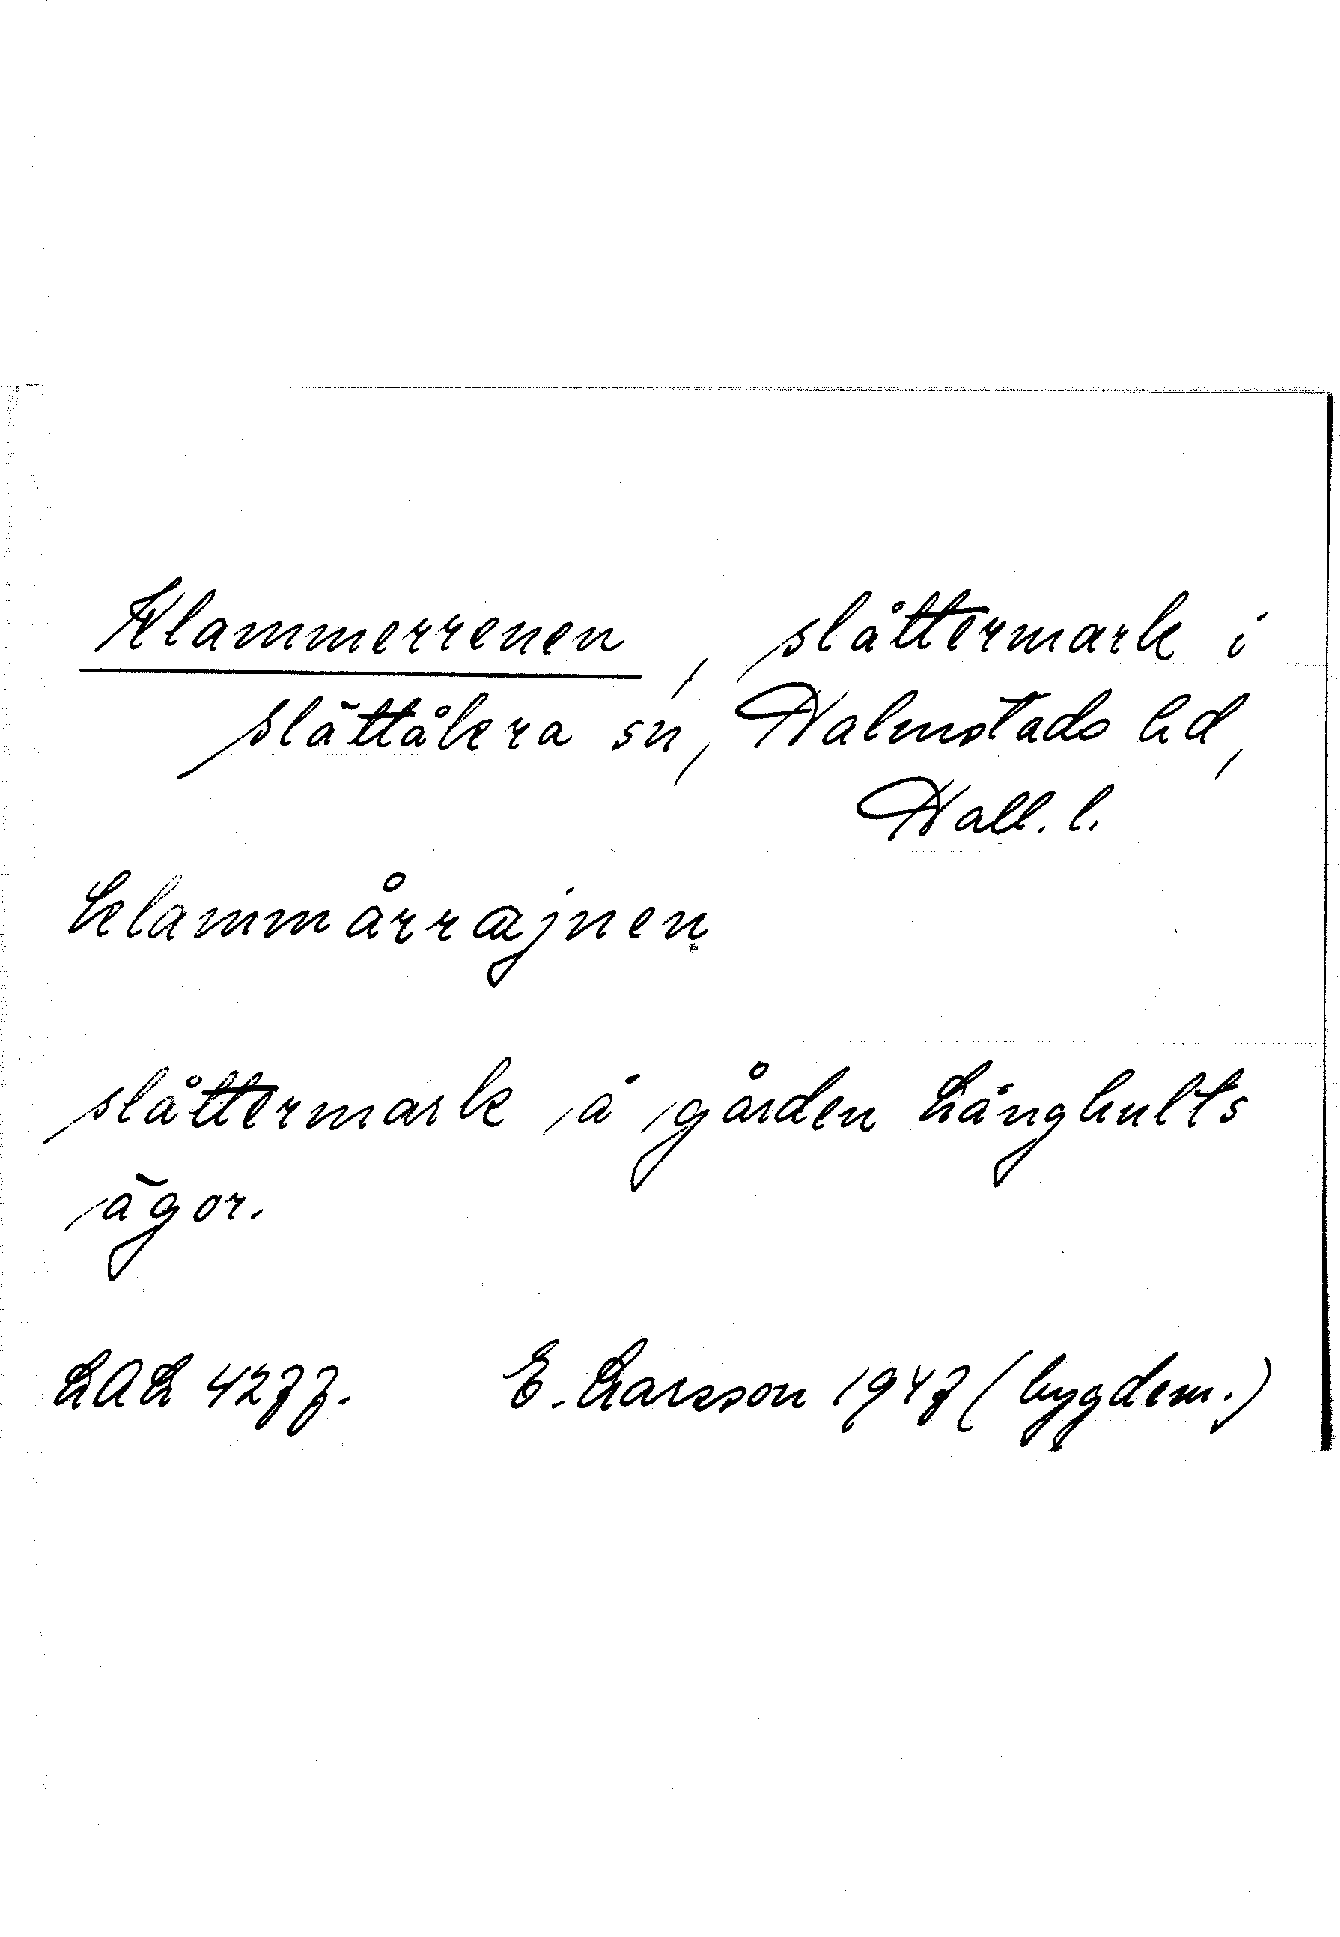 Klammerrenen, slåttermark i
Slättåkra sn, Halmstads hd,
Hall. l.
klammårræjnen
slåttermark å gården Långhults
ägor.
LAL 4277. E. Larsson 1947 (bygdem.)